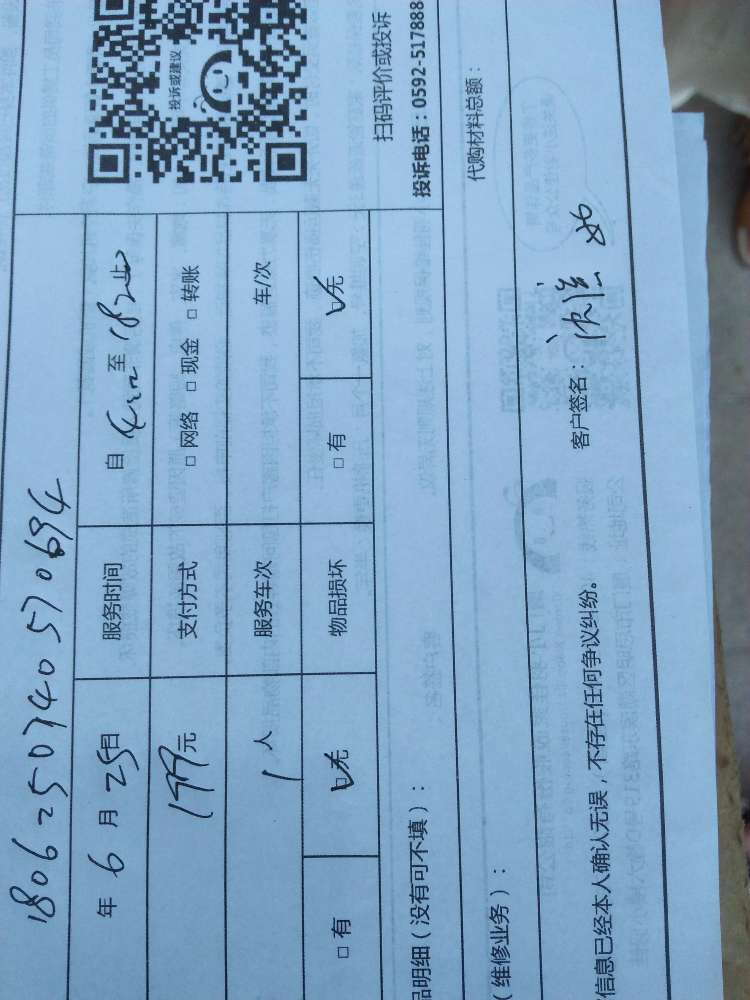 1806250740570694
年 6 月 25日 服务时间 自 至 止
199元 支付方式 □ 网络 □ 现金 □ 转账
1 人 服务车次 车/次
□ 有 □无 物品损坏 □ 有 □无
投诉或建议
扫码评价或投诉
品明细(没有可不填): 投诉电话:0592-517888
(维修业务): 代购材料总额:
信息已经本人确认无误,不存在任何争议纠纷。 客户签名: